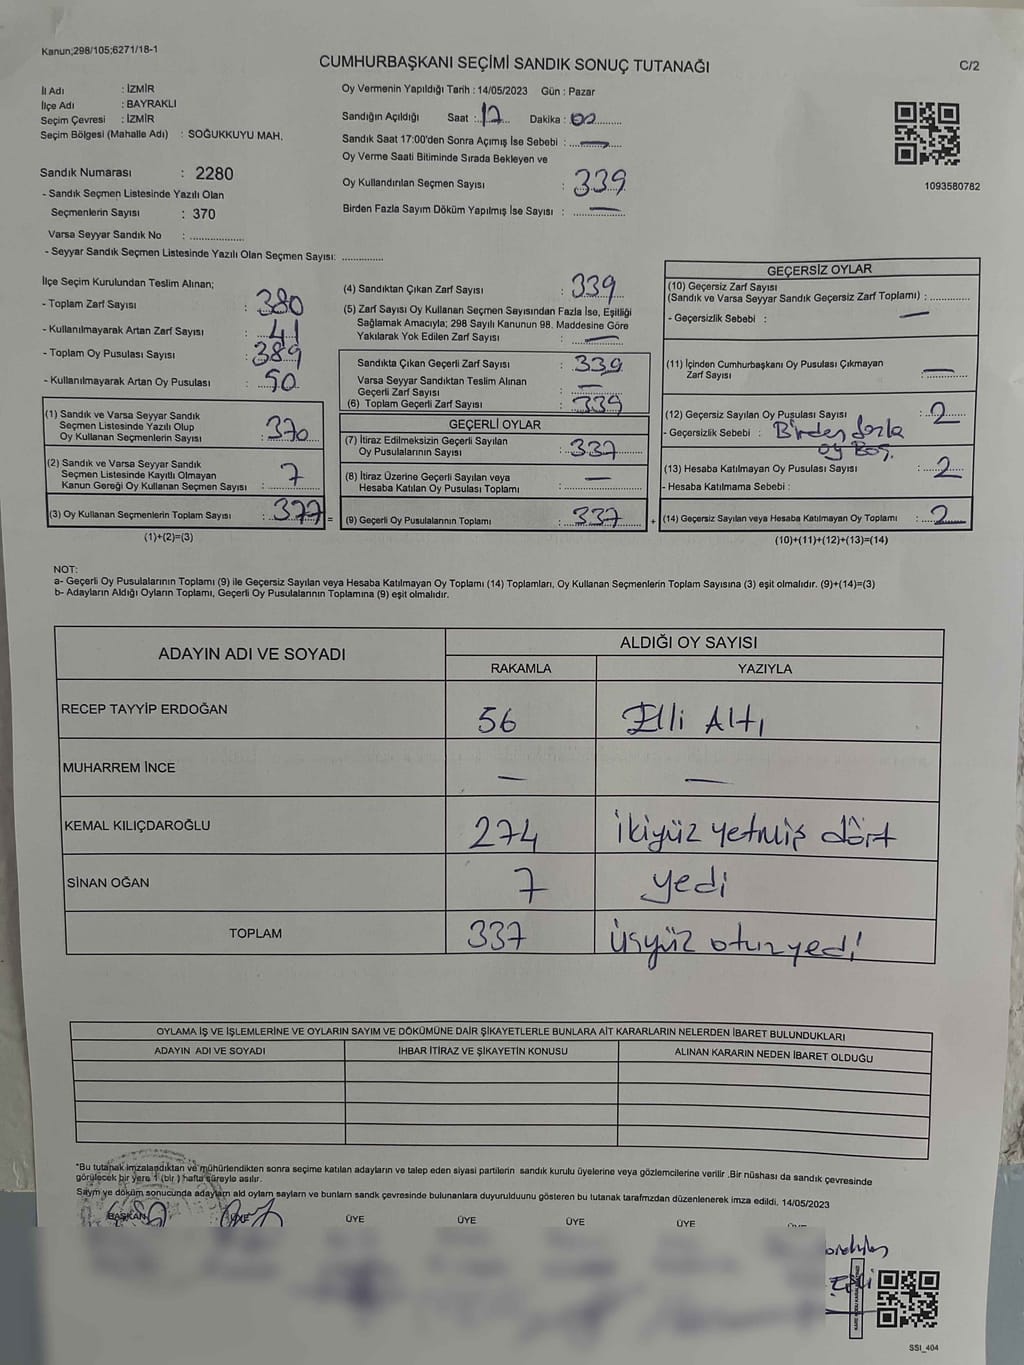 Kanun;298/105;6271/18-1
CUMHURBAŞKANI SEÇİMİ SANDIK SONUÇ TUTANAĞI
C/2
İl Adı : İZMİR
İlçe Adı : BAYRAKLI
Seçim Çevresi : İZMİR
Seçim Bölgesi (Mahalle Adı) : SOĞUKKUYU MAH.
Sandık Numarası : 2280
- Sandık Seçmen Listesinde Yazılı Olan
Seçmenlerin Sayısı : 370
Varsa Seyyar Sandık No : ..................
- Seyyar Sandık Seçmen Listesinde Yazılı Olan Seçmen Sayısı: ..............
Oy Vermenin Yapıldığı Tarih : 14/05/2023 Gün : Pazar
Sandığın Açıldığı Saat : 17 Dakika : 00
Sandık Saat 17:00'den Sonra Açımış İse Sebebi : —
Oy Verme Saati Bitiminde Sırada Bekleyen ve
Oy Kullandırılan Seçmen Sayısı : 339
Birden Fazla Sayım Döküm Yapılmış İse Sayısı : —
1093580782
İlçe Seçim Kurulundan Teslim Alınan;
- Toplam Zarf Sayısı : 380
- Kullanılmayarak Artan Zarf Sayısı : 41
- Toplam Oy Pusulası Sayısı : 389
- Kullanılmayarak Artan Oy Pusulası : 50
(1) Sandık ve Varsa Seyyar Sandık
Seçmen Listesinde Yazılı Olup
Oy Kullanan Seçmenlerin Sayısı : 370
(2) Sandık ve Varsa Seyyar Sandık
Seçmen Listesinde Kayıtlı Olmayan
Kanun Gereği Oy Kullanan Seçmen Sayısı : 7
(3) Oy Kullanan Seçmenlerin Toplam Sayısı : 377 =
(1)+(2)=(3)
(4) Sandıktan Çıkan Zarf Sayısı : 339
(5) Zarf Sayısı Oy Kullanan Seçmen Sayısından Fazla İse, Eşitliği
Sağlamak Amacıyla; 298 Sayılı Kanunun 98. Maddesine Göre
Yakılarak Yok Edilen Zarf Sayısı : —
Sandıkta Çıkan Geçerli Zarf Sayısı : 339
Varsa Seyyar Sandıktan Teslim Alınan
Geçerli Zarf Sayısı : —
(6) Toplam Geçerli Zarf Sayısı : 339
GEÇERLİ OYLAR
(7) İtiraz Edilmeksizin Geçerli Sayılan
Oy Pusulalarının Sayısı : 337
(8) İtiraz Üzerine Geçerli Sayılan veya
Hesaba Katılan Oy Pusulası Toplamı : —
(9) Geçerli Oy Pusulalarının Toplamı : 337 +
GEÇERSİZ OYLAR
(10) Geçersiz Zarf Sayısı
(Sandık ve Varsa Seyyar Sandık Geçersiz Zarf Toplamı) : ..........
- Geçersizlik Sebebi : —
(11) İçinden Cumhurbaşkanı Oy Pusulası Çıkmayan
Zarf Sayısı : —
(12) Geçersiz Sayılan Oy Pusulası Sayısı : 2
- Geçersizlik Sebebi : Birden fazla
oy Boş.
(13) Hesaba Katılmayan Oy Pusulası Sayısı : 2
- Hesaba Katılmama Sebebi :
(14) Geçersiz Sayılan veya Hesaba Katılmayan Oy Toplamı : 2
(10)+(11)+(12)+(13)=(14)
NOT:
a- Geçerli Oy Pusulalarının Toplamı (9) ile Geçersiz Sayılan veya Hesaba Katılmayan Oy Toplamı (14) Toplamları, Oy Kullanan Seçmenlerin Toplam Sayısına (3) eşit olmalıdır. (9)+(14)=(3)
b- Adayların Aldığı Oyların Toplamı, Geçerli Oy Pusulalarının Toplamına (9) eşit olmalıdır.
ADAYIN ADI VE SOYADI
ALDIĞI OY SAYISI
RAKAMLA YAZIYLA
RECEP TAYYİP ERDOĞAN 56 Elli Altı
MUHARREM İNCE — —
KEMAL KILIÇDAROĞLU 274 ikiyüz yetmiş dört
SİNAN OĞAN 7 yedi
TOPLAM 337 üçyüz otuzyedi
OYLAMA İŞ VE İŞLEMLERİNE VE OYLARIN SAYIM VE DÖKÜMÜNE DAİR ŞİKAYETLERLE BUNLARA AİT KARARLARIN NELERDEN İBARET BULUNDUKLARI
ADAYIN ADI VE SOYADI İHBAR İTİRAZ VE ŞİKAYETİN KONUSU ALINAN KARARIN NEDEN İBARET OLDUĞU
"Bu tutanak imzalandıktan ve mühürlendikten sonra seçime katılan adayların ve talep eden siyasi partilerin sandık kurulu üyelerine veya gözlemcilerine verilir .Bir nüshası da sandık çevresinde
görülecek bir yere 1 (bir ) hafta süreyle asılır.
Sayım ve döküm sonucunda adayların aldı oyların sayıların ve bunların sandık çevresinde bulunanlara duyurulduunu gösteren bu tutanak tarafımzdan düzenlenerek imza edildi. 14/05/2023
BAŞKAN ÜYE ÜYE ÜYE ÜYE ÜYE
SSI_404